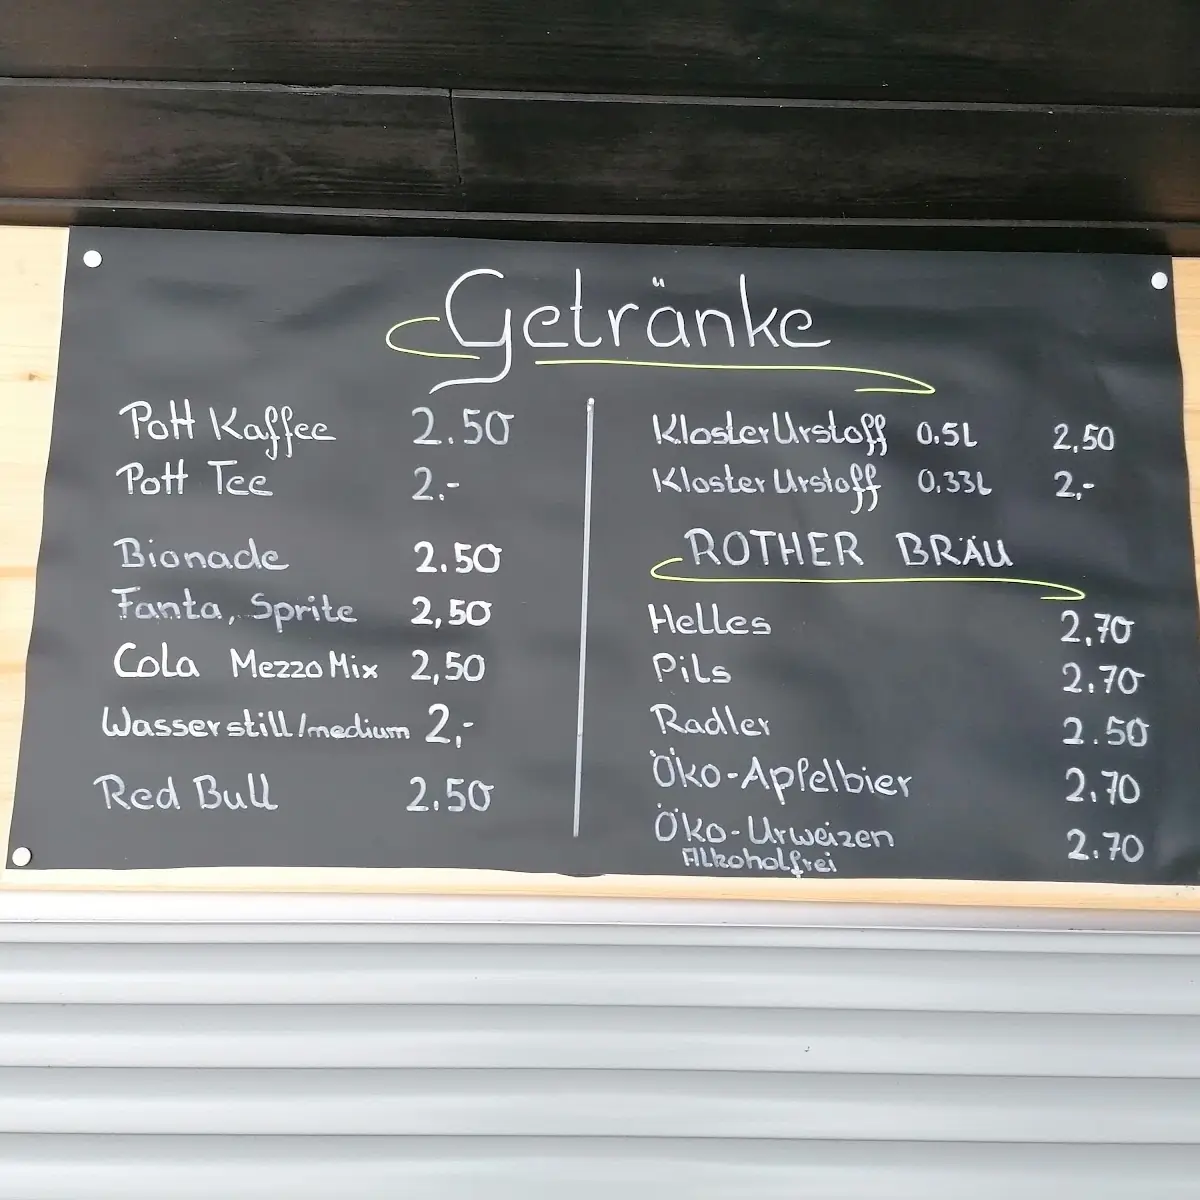 Getränke
Pott Kaffee 2.50
Pott Tee 2.-
Bionade 2.50
Fanta, Sprite 2,50
Cola Mezzo Mix 2,50
Wasser still/medium 2,-
Red Bull 2.50
Kloster Urstoff 0.5L 2,50
Kloster Urstoff 0.33L 2,-
ROTHER BRÄU
Helles 2,70
Pils 2.70
Radler 2.50
Öko-Apfelbier 2.70
Öko-Urweizen 2.70
Alkoholfrei